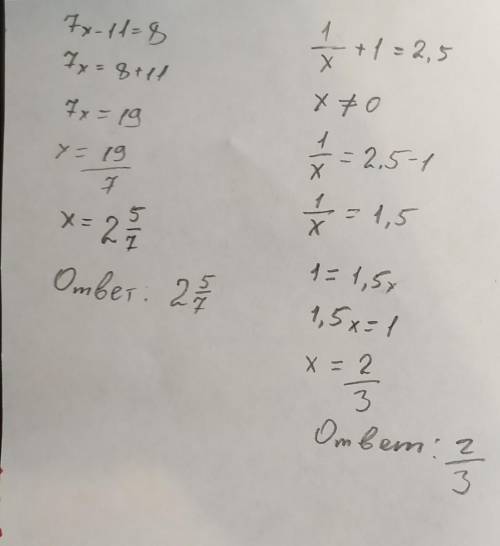 7x-11=8
7x=8+11
7x=19
x=19/7
x=2 5/7
Ответ: 2 5/7
1/x+1=2,5
x≠0
1/x=2.5-1
1/x=1,5
1=1,5x
1,5x=1
x=2/3
Ответ: 2/3